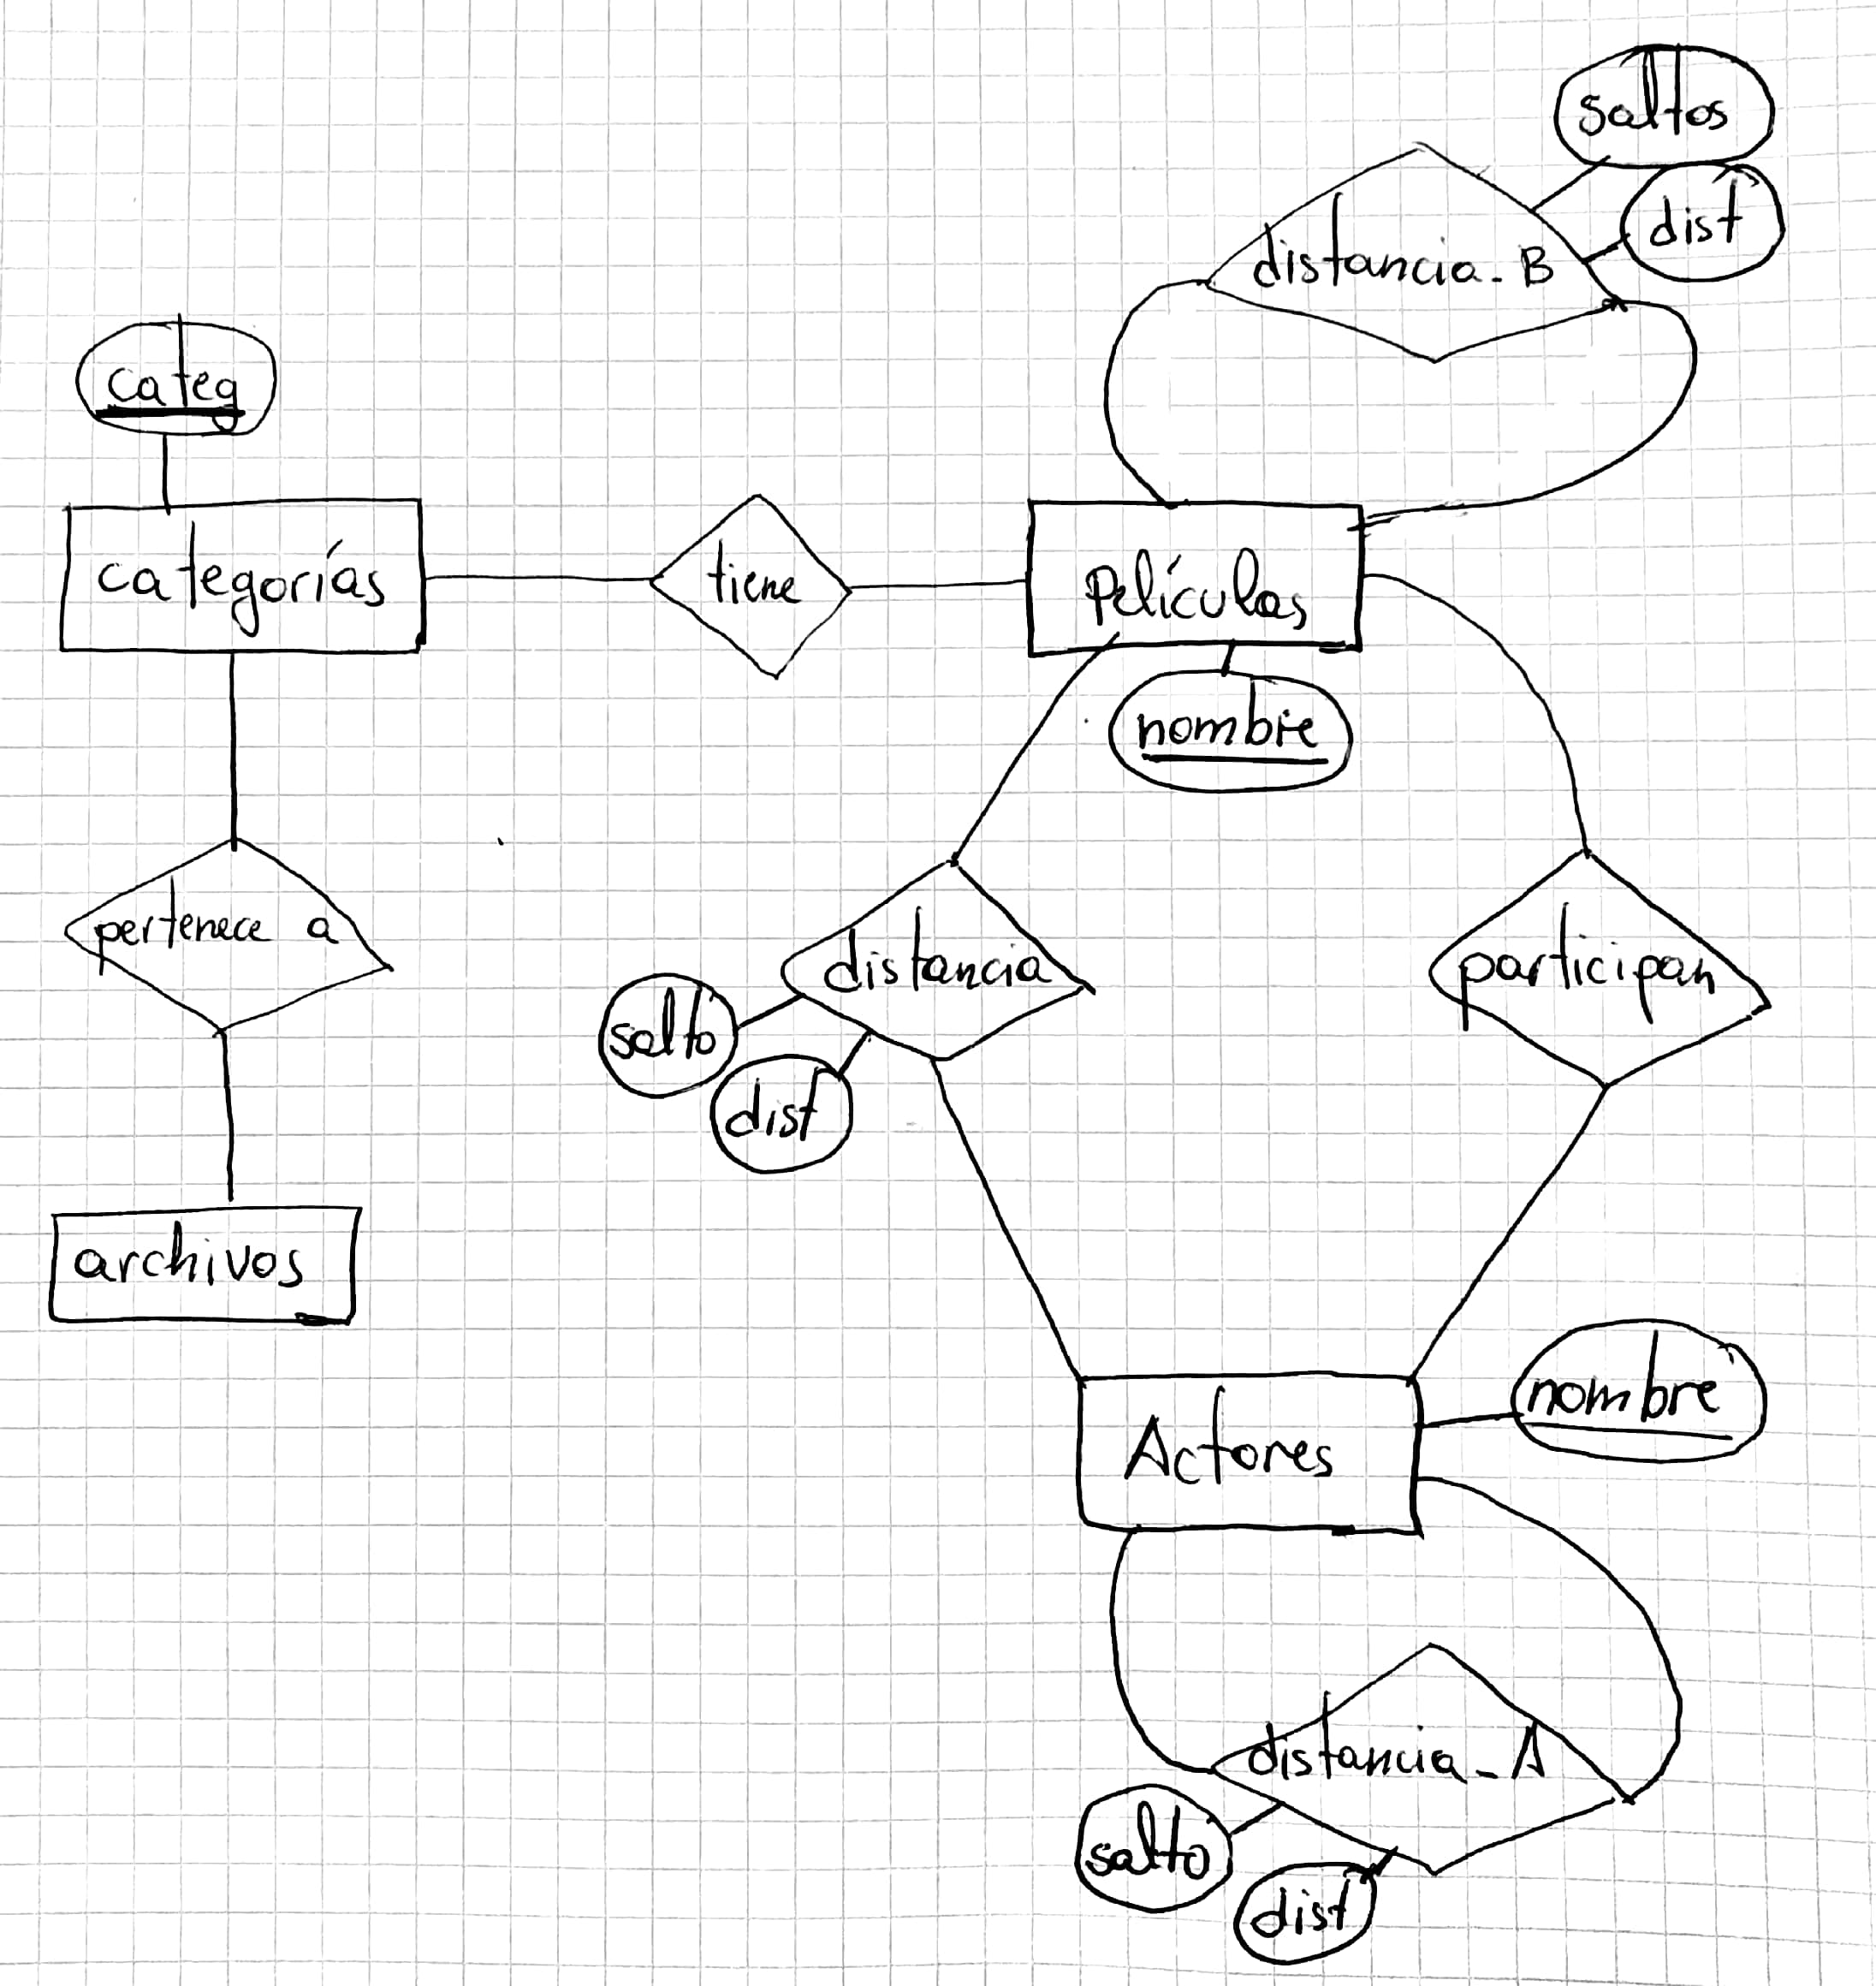 saltos
dist
distancia_B
categ
categorías
tiene
Películas
nombre
pertenece a
distancia
participan
salto
dist
archivos
nombre
Actores
distancia_A
salto
dist